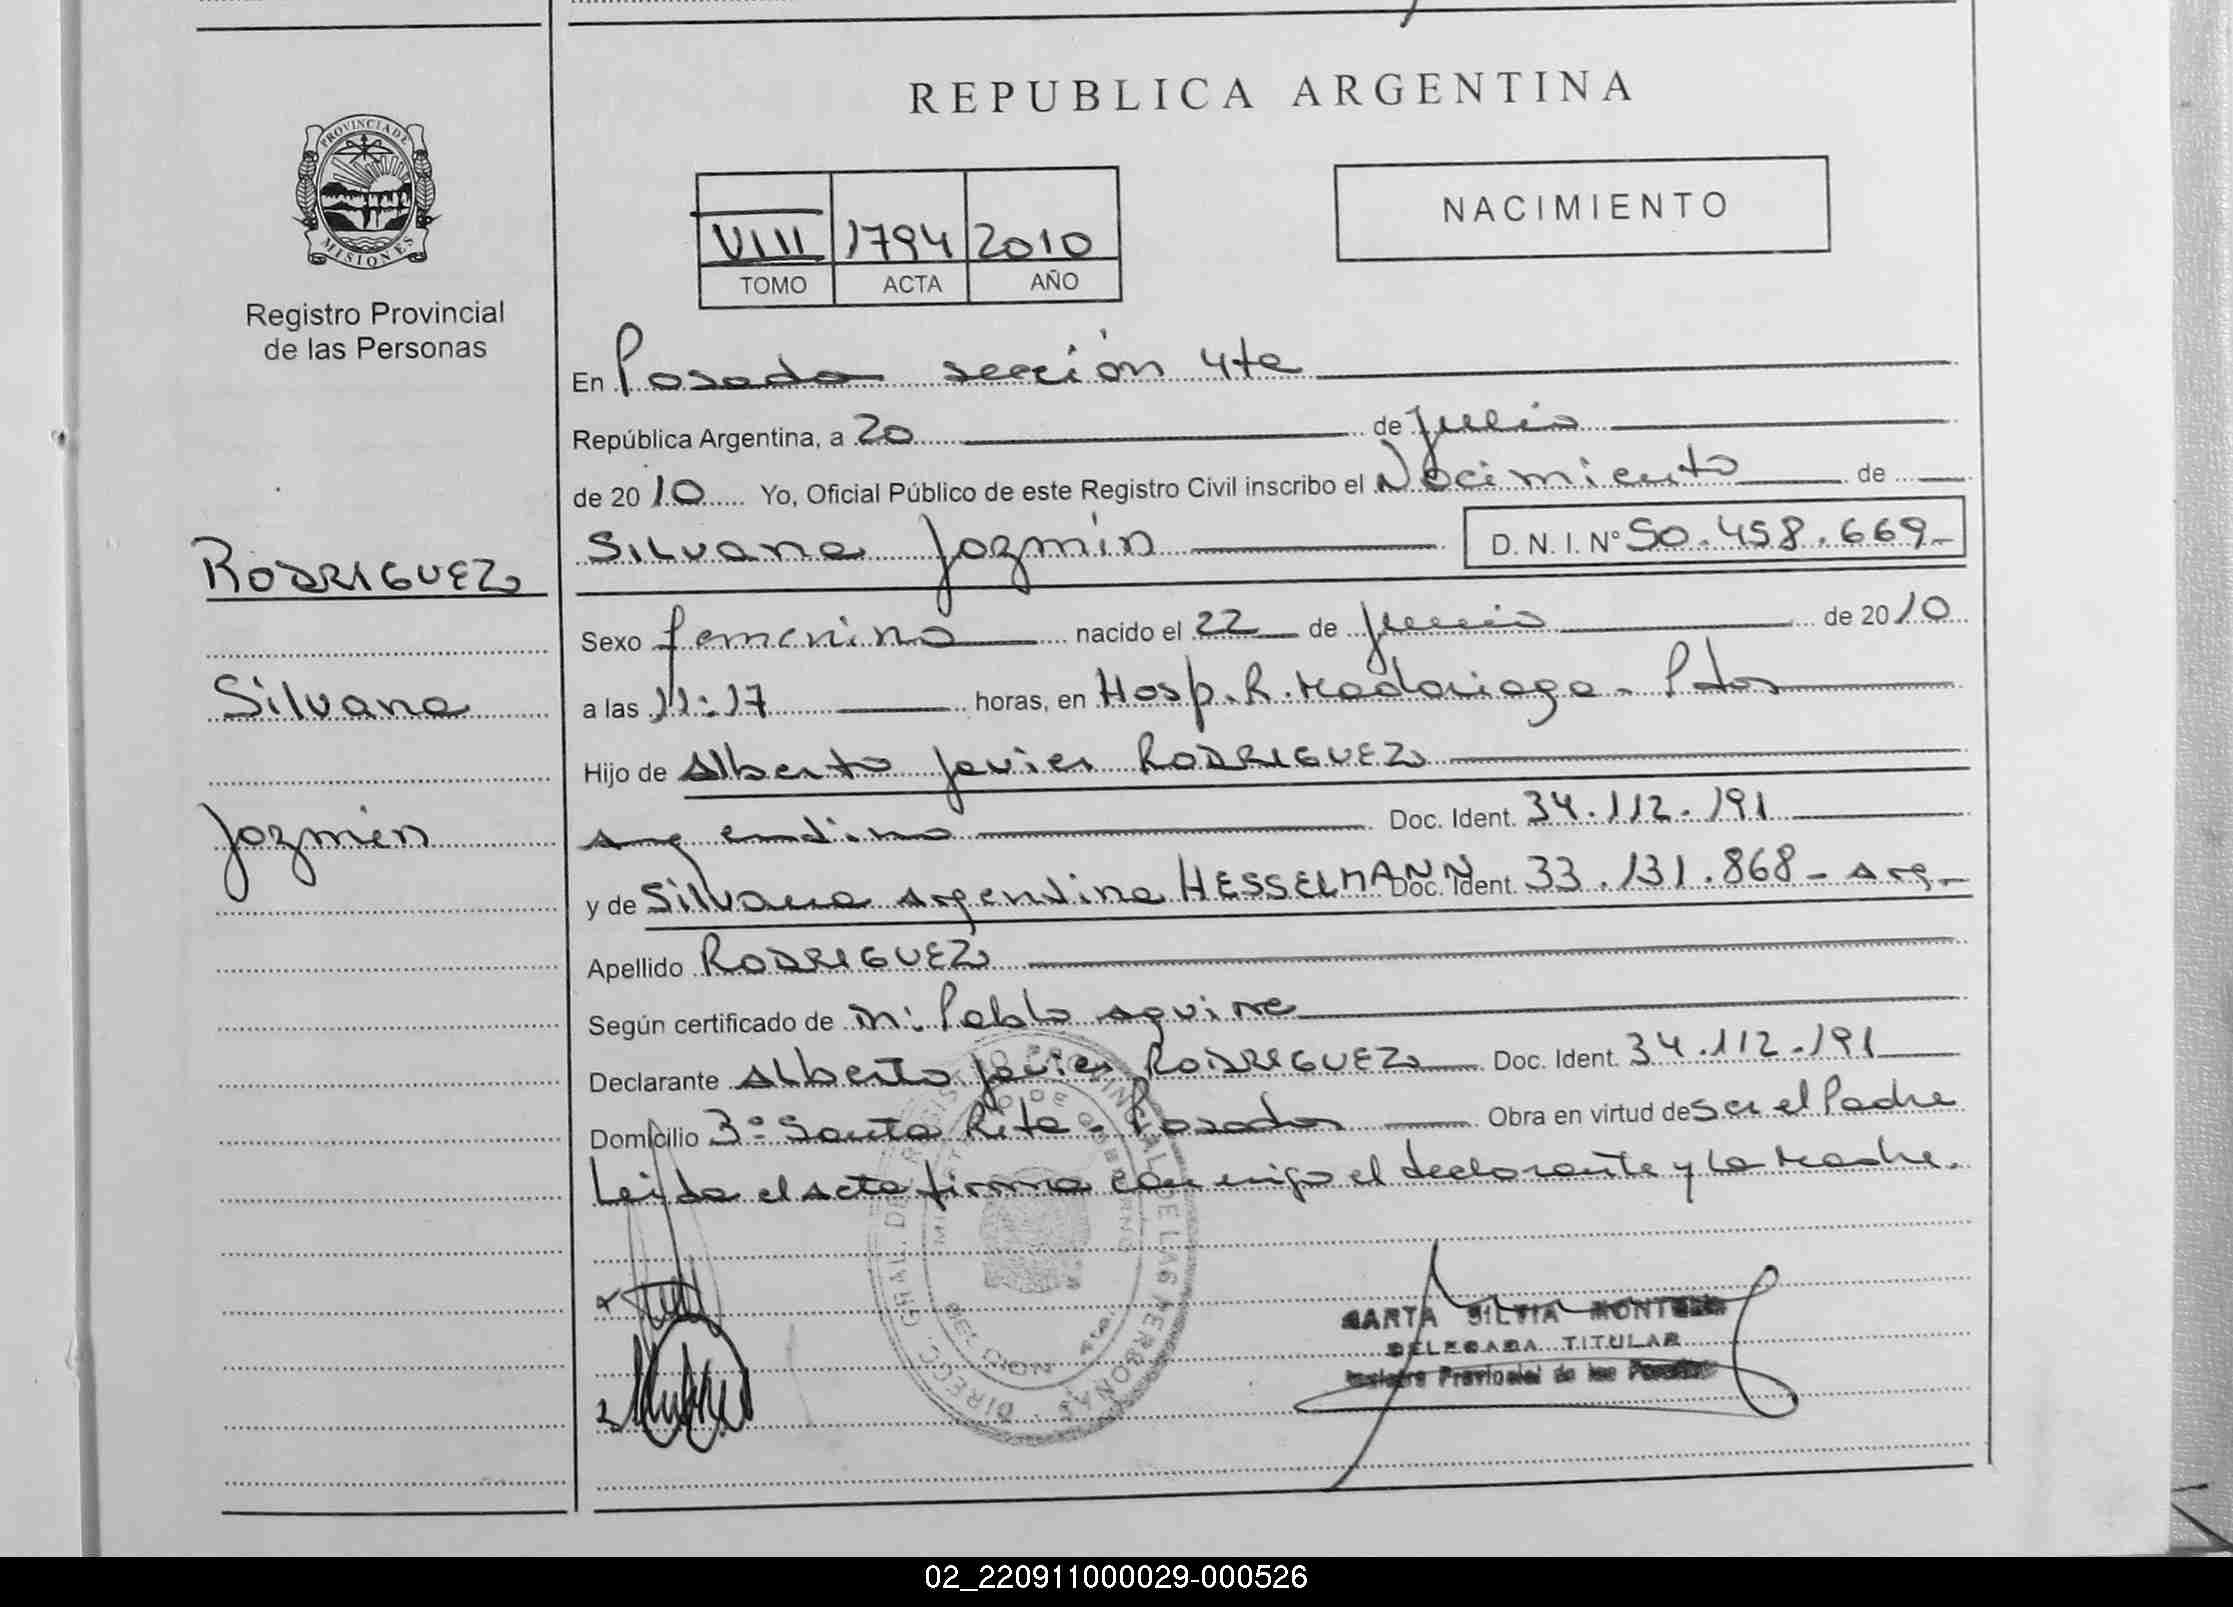 REPUBLICA ARGENTINA
PROVINCIA DE
MISIONES
Registro Provincial
de las Personas
NACIMIENTO
VIII 1794 2010
TOMO ACTA AÑO
En Posadas sección 4ta
República Argentina, a 20 de Julio
de 2010 Yo, Oficial Público de este Registro Civil inscribo el Nacimiento de
Silvana Jazmín D. N. I. Nº 50.458.669-
RODRIGUEZ
Silvana
Jazmín
Sexo femenino nacido el 22 de Junio de 2010
a las 11:17 horas, en Hosp. R. Madariaga - Pdas
Hijo de Alberto Javier RODRIGUEZ
Argentino Doc. Ident. 34.112.191
y de Silvana Argentina HESSELMANN Doc. Ident. 33.131.868 - Arg-
Apellido RODRIGUEZ
Según certificado de M: Pablo Aguirre
Declarante Alberto Javier RODRIGUEZ Doc. Ident. 34.112.191
Domicilio Bº Santa Rita - Posadas Obra en virtud de ser el Padre
Leida el acta firma con migo el declarante y la Madre.
SILVIA
DELEGADA TITULAR
Provincial de las
02_220911000029-000526